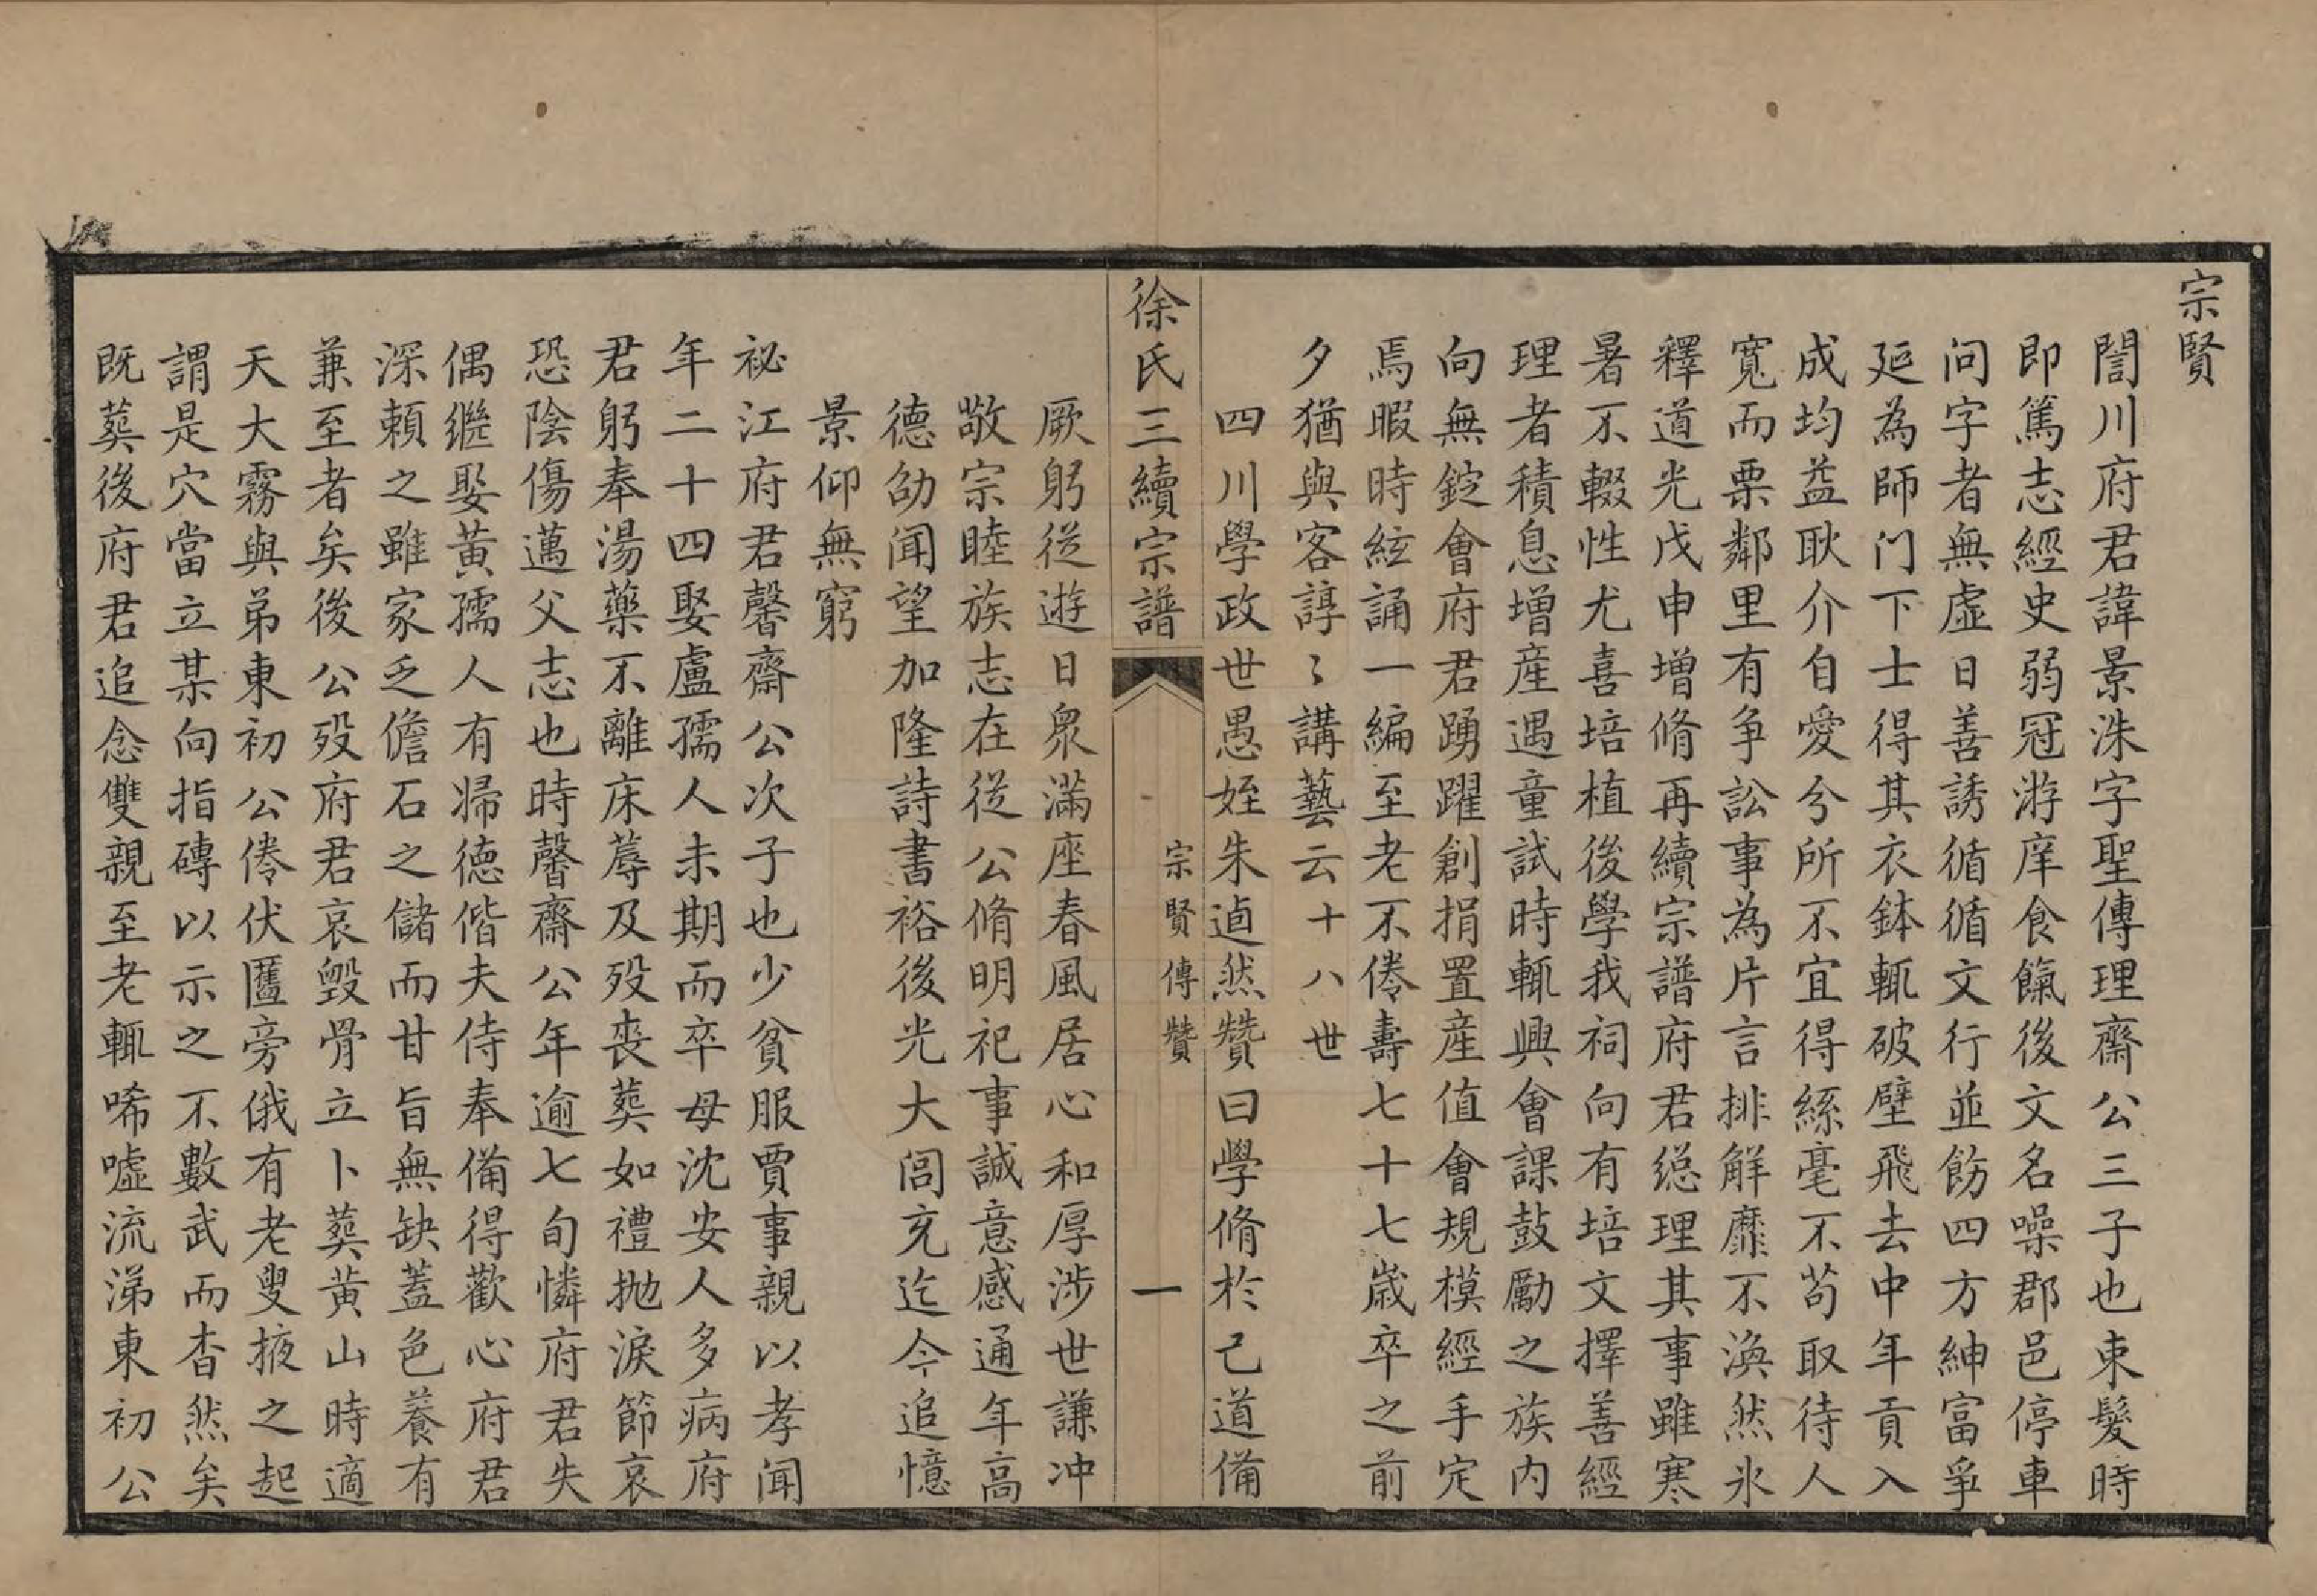 宗賢
誾川府君諱景洙字聖傳理齋公三子也束髮時
即篤志經史弱冠游庠食餼後文名噪郡邑停車
问字者無虛日善誘循循文行並飭四方紳富爭
延為師门下士得其衣鉢輒破壁飛去中年貢入
成均益耿介自愛兮所不宜得絲毫不苟取待人
寬而栗鄰里有争訟事為片言排解靡不渙然氷
釋道光戊申增脩再續宗譜府君緫理其事雖寒
暑不輟性尤喜培植後學我祠向有培文擇善經
理者積息增産遇童試時輒興會課鼓勵之族内
向無錠會府君踴躍創捐置産值會規模經手定
焉暇時絃誦一編至老不倦壽七十七歲卒之前
夕猶與客諄〻講藝云十八世
四川學政世愚姪朱逌然贊曰學脩於己道備
徐氏三續宗譜
宗賢傳贊
一
厥躬從遊日衆滿座春風居心和厚涉世謙冲
敬宗睦族志在從公脩明祀事誠意感通年高
德劭闻望加隆詩書裕後光大閭充迄今追憶
景仰無窮
祕江府君馨齋公次子也少貧服賈事親以孝聞
年二十四娶盧孺人未期而卒母沈安人多病府
君躬奉湯藥不離床蓐及殁喪葬如禮抛淚節哀
恐陰傷邁父志也時馨齋公年逾七旬憐府君失
偶繼娶黃孺人有婦德偕夫侍奉備得歡心府君
深賴之雖家乏儋石之儲而甘旨無缺蓋色養有
兼至者矣後公殁府君哀毀骨立卜葬黄山時適
天大霧與弟東初公倦伏匶旁俄有老叟掖之起
謂是穴當立某向指磚以示之不數武而杳然矣
既葬後府君追念雙親至老輒唏噓流涕東初公